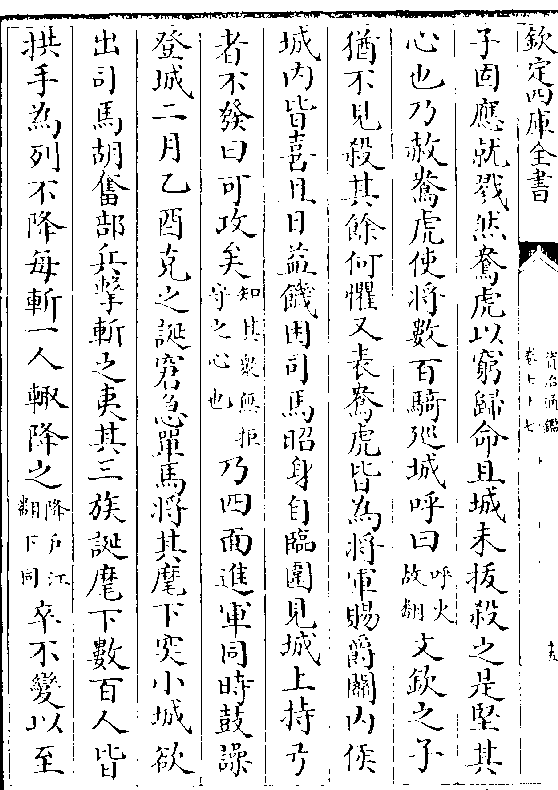 欽定四庫全書
資治通鑑
卷七十七
子固應就戮然鴦虎以窮歸命且城未拔殺之是堅其
心也乃赦鴦虎使將數百騎廵城呼曰呼火故翻文欽之子
猶不見殺其餘何懼又表鴦虎皆為將軍賜爵關内侯
城内皆喜且日益饑困司馬昭身自臨圍見城上持弓
者不發曰可攻矣知其衆無拒守之心也乃四面進軍同時鼓譟
登城二月乙酉克之誕窘急單馬將其麾下突小城欲
出司馬胡奮部兵擊斬之夷其三族誕麾下數百人皆
拱手為列不降每斬一人輙降之降戶江翻下同卒不變以至